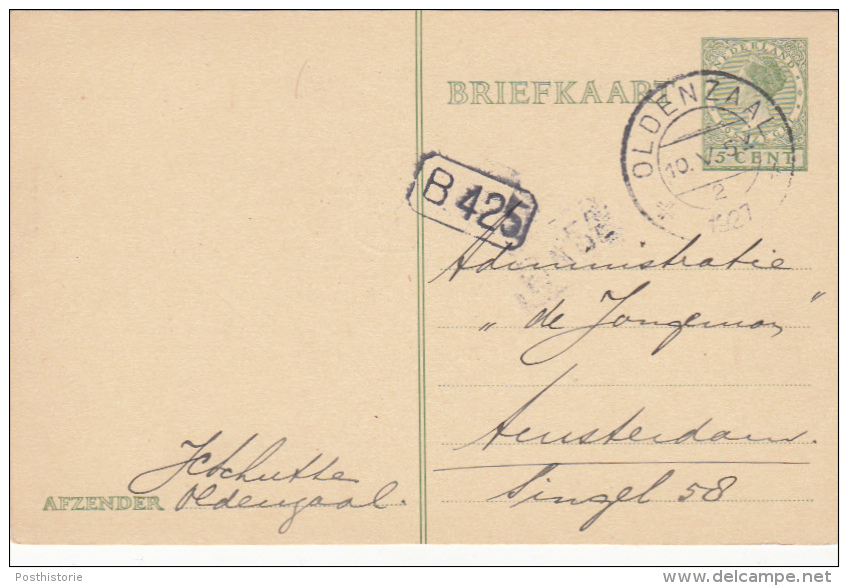 BRIEFKAART
NEDERLAND
5 CENT
OLDENZAAL
10.V
2
1927
B 425
Administratie
„ de Jongeman "
Amsterdam.
Singel 58
Oldenzaal.
AFZENDER
Posthistorie
delcampe.net